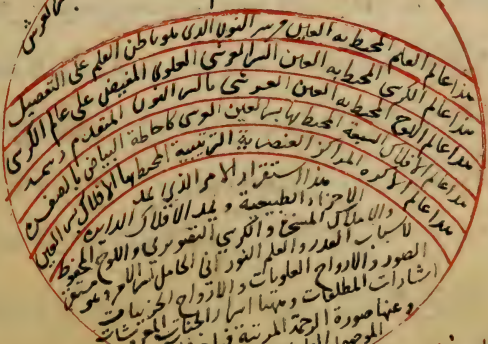 العرش
هذا عالم العلم المحيط به العين من سر النون الذي هو باطن العلم على التفصيل
هذا عالم الكرسي المحيط به العين السر العرشي العلوي المفيض على عالم الكرسي
هذا عالم اللوح المحيط به العين العرشي بالسر النون المتقدم رسمه
هذا عالم الأفلاك السبعة المحيط بها سر العين العرشي كاحاطة البياض بالصفرة
هذا عالم الأكره المراكز العنصرية الترتيبية المحيط بها الأفلاك سر العين
هذا استقرار الامر الذي يمد
الاجزاء الطبيعية ويمد الافلاك الدايرة
والاملاك المسخرة والكرسي التصويري واللوح المحفوظ
لاسباب القدر والعلم النوراني الحامل لسر الامر
الصور والارواح العلويات والارواح الجزييات
اشارات المطلقات ومنها اسرار الجنات
وعنها صورة الرحمة المرتبة